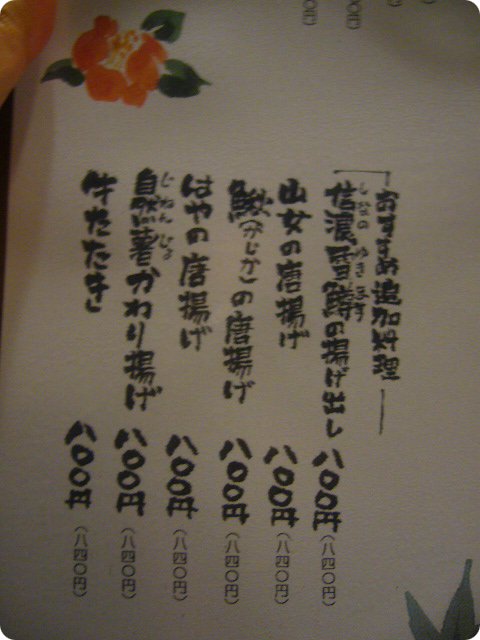 おすすめ追加料理
信濃雪鱒の揚げ出し 八〇〇円(八四〇円)
しなの ゆき ます
山女の唐揚げ 八〇〇円(八四〇円)
鰍(かじか)の唐揚げ 八〇〇円(八四〇円)
はやの唐揚げ 八〇〇円(八四〇円)
自然薯かわり揚げ 八〇〇円(八四〇円)
じねんじょ
牛たたき 八〇〇円(八四〇円)